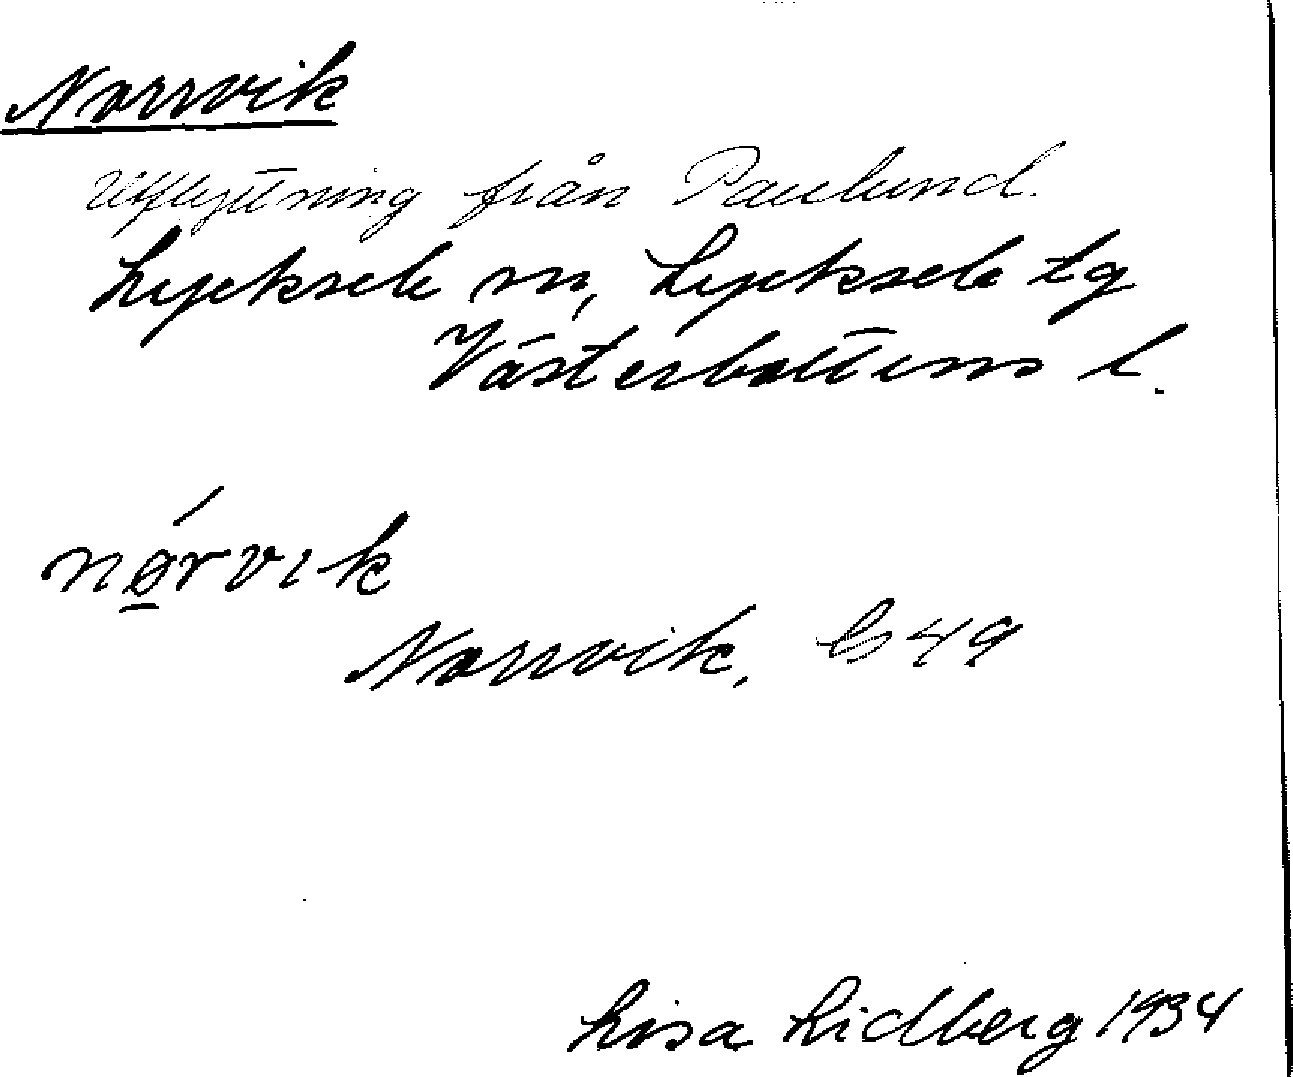 Norrvik
Utflyttning från Paulund.
Lycksele sn, Lycksele tg
Västerbottens l.
nørvik
Norrvik, G 49
Lisa Lidberg 1934